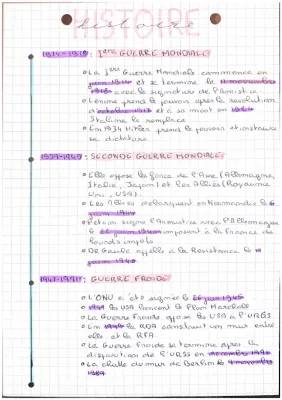 HISTOIRE
histoire
1914-1918: 1ère GUERRE MONDIALE
La 1ère Guerre Mondiale commence en
juin 1914 et se termine le 11 novembre
1918 avec la signature de l'Armistice
Lénine prend le pouvoir après la révolution
d'octobre 1917 et à sa mort en 1924
Staline le remplace
En 1934 Hitler prend le pouvoir et instaure
sa dictature
1939-1945: SECONDE GUERRE MONDIALE
Elle oppose les forces de l'Axe (Allemagne,
Italie, Japon) et les Alliés (Royaume
Uni, USA).
Les Alliés débarquent en Normandie le 6
juin 1944
Pétain signe l'Armistice avec l'Allemagne
le 22 juin 1940 imposant à la France de
lourds impôts
De Gaulle appelle à la Résistance le
juin 1940
1947-1991: GUERRE FROIDE
L'ONU a été signée le 26 juin 1945
les USA lancent le Plan Marshall
La Guerre Froide oppose les USA à l'URSS
En la RDA construit un mur entre
elle et la RFA
La Guerre Froide se termine après la
disparition de l'URSS en décembre 1991
La chute du mur de Berlin le novembre
1989